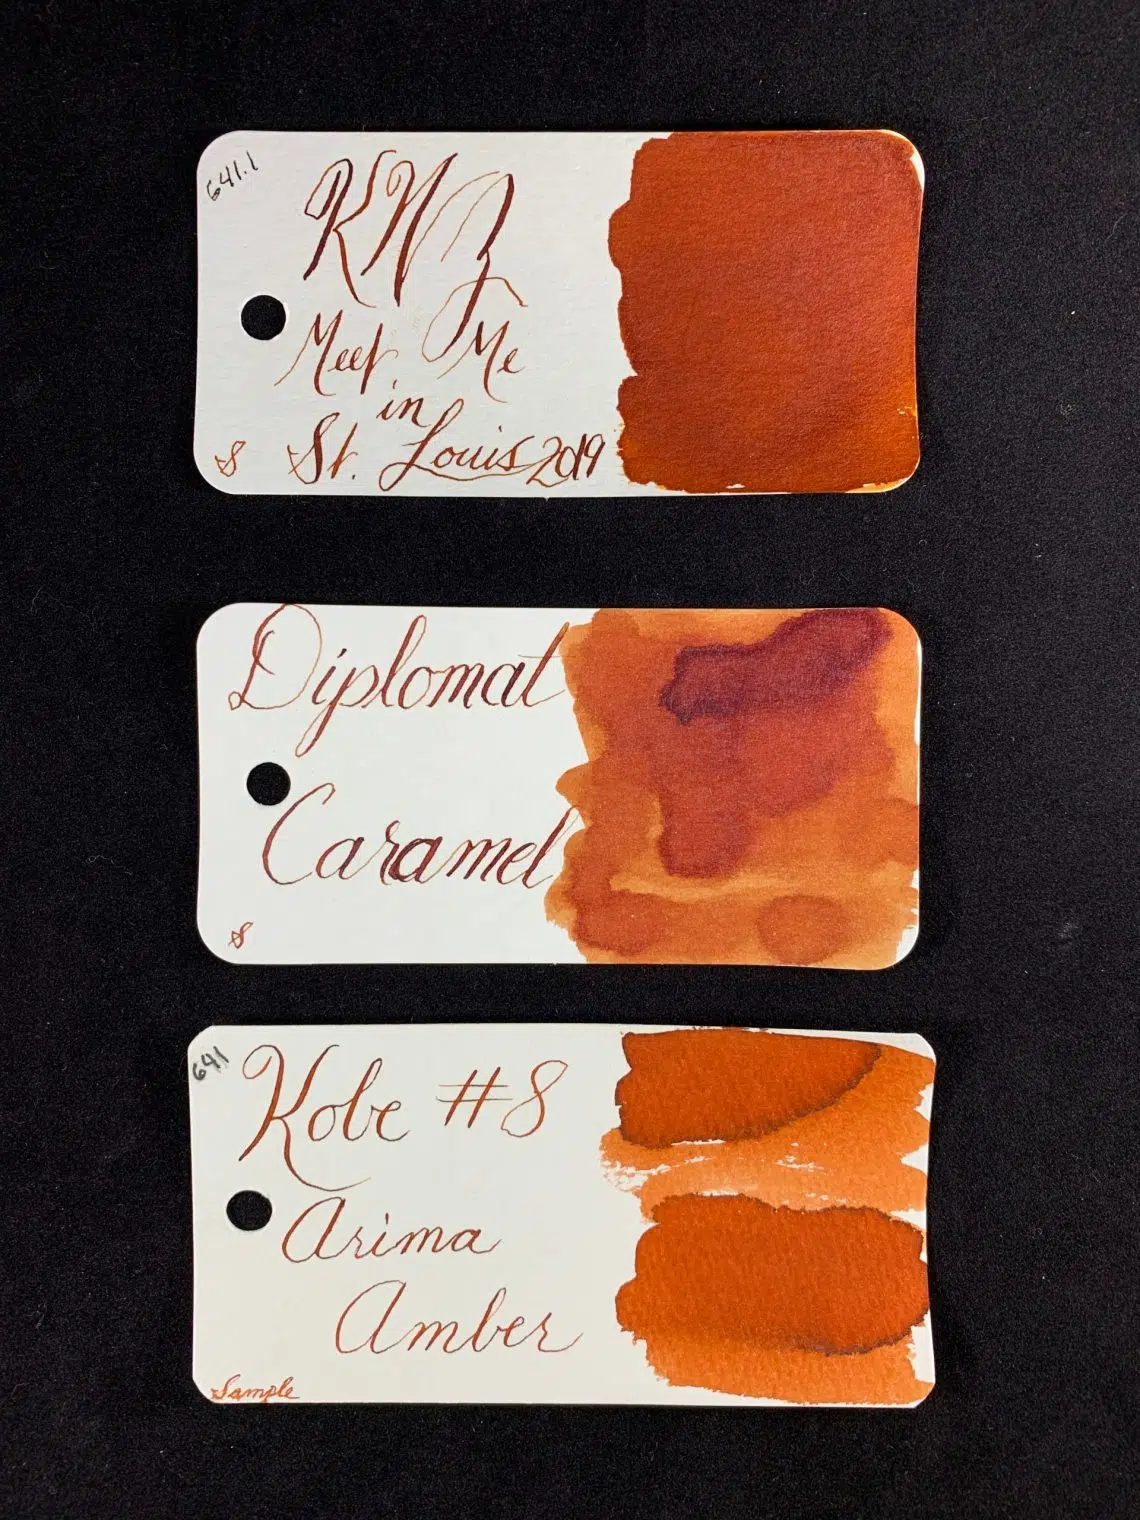 641.1
KWZ
Meet Me
in
St. Louis 2019
S
Diplomat
Caramel
S
641
Kobe #8
Arima
Amber
Sample